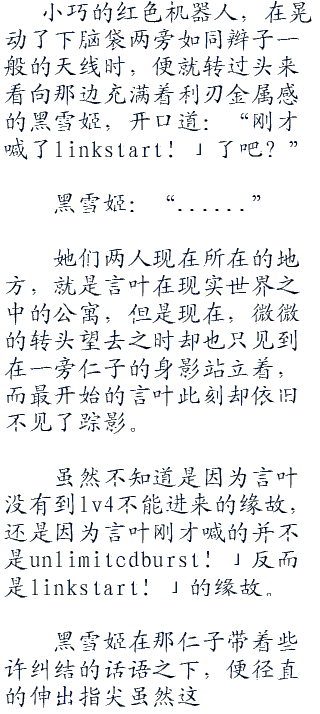 小巧的红色机器人，在晃
动了下脑袋两旁如同辫子一
般的天线时，便就转过头来
看向那边充满着利刃金属感
的黑雪姬，开口道：“刚才
喊了linkstart！」了吧？”
黑雪姬：“......”
她们两人现在所在的地
方，就是言叶在现实世界之
中的公寓，但是现在，微微
的转头望去之时却也只见到
在一旁仁子的身影站立着，
而最开始的言叶此刻却依旧
不见了踪影。
虽然不知道是因为言叶
没有到lv4不能进来的缘故，
还是因为言叶刚才喊的并不
是unlimitcdburst！」反而
是linkstart！」的缘故。
黑雪姬在那仁子带着些
许纠结的话语之下，便径直
的伸出指尖虽然这